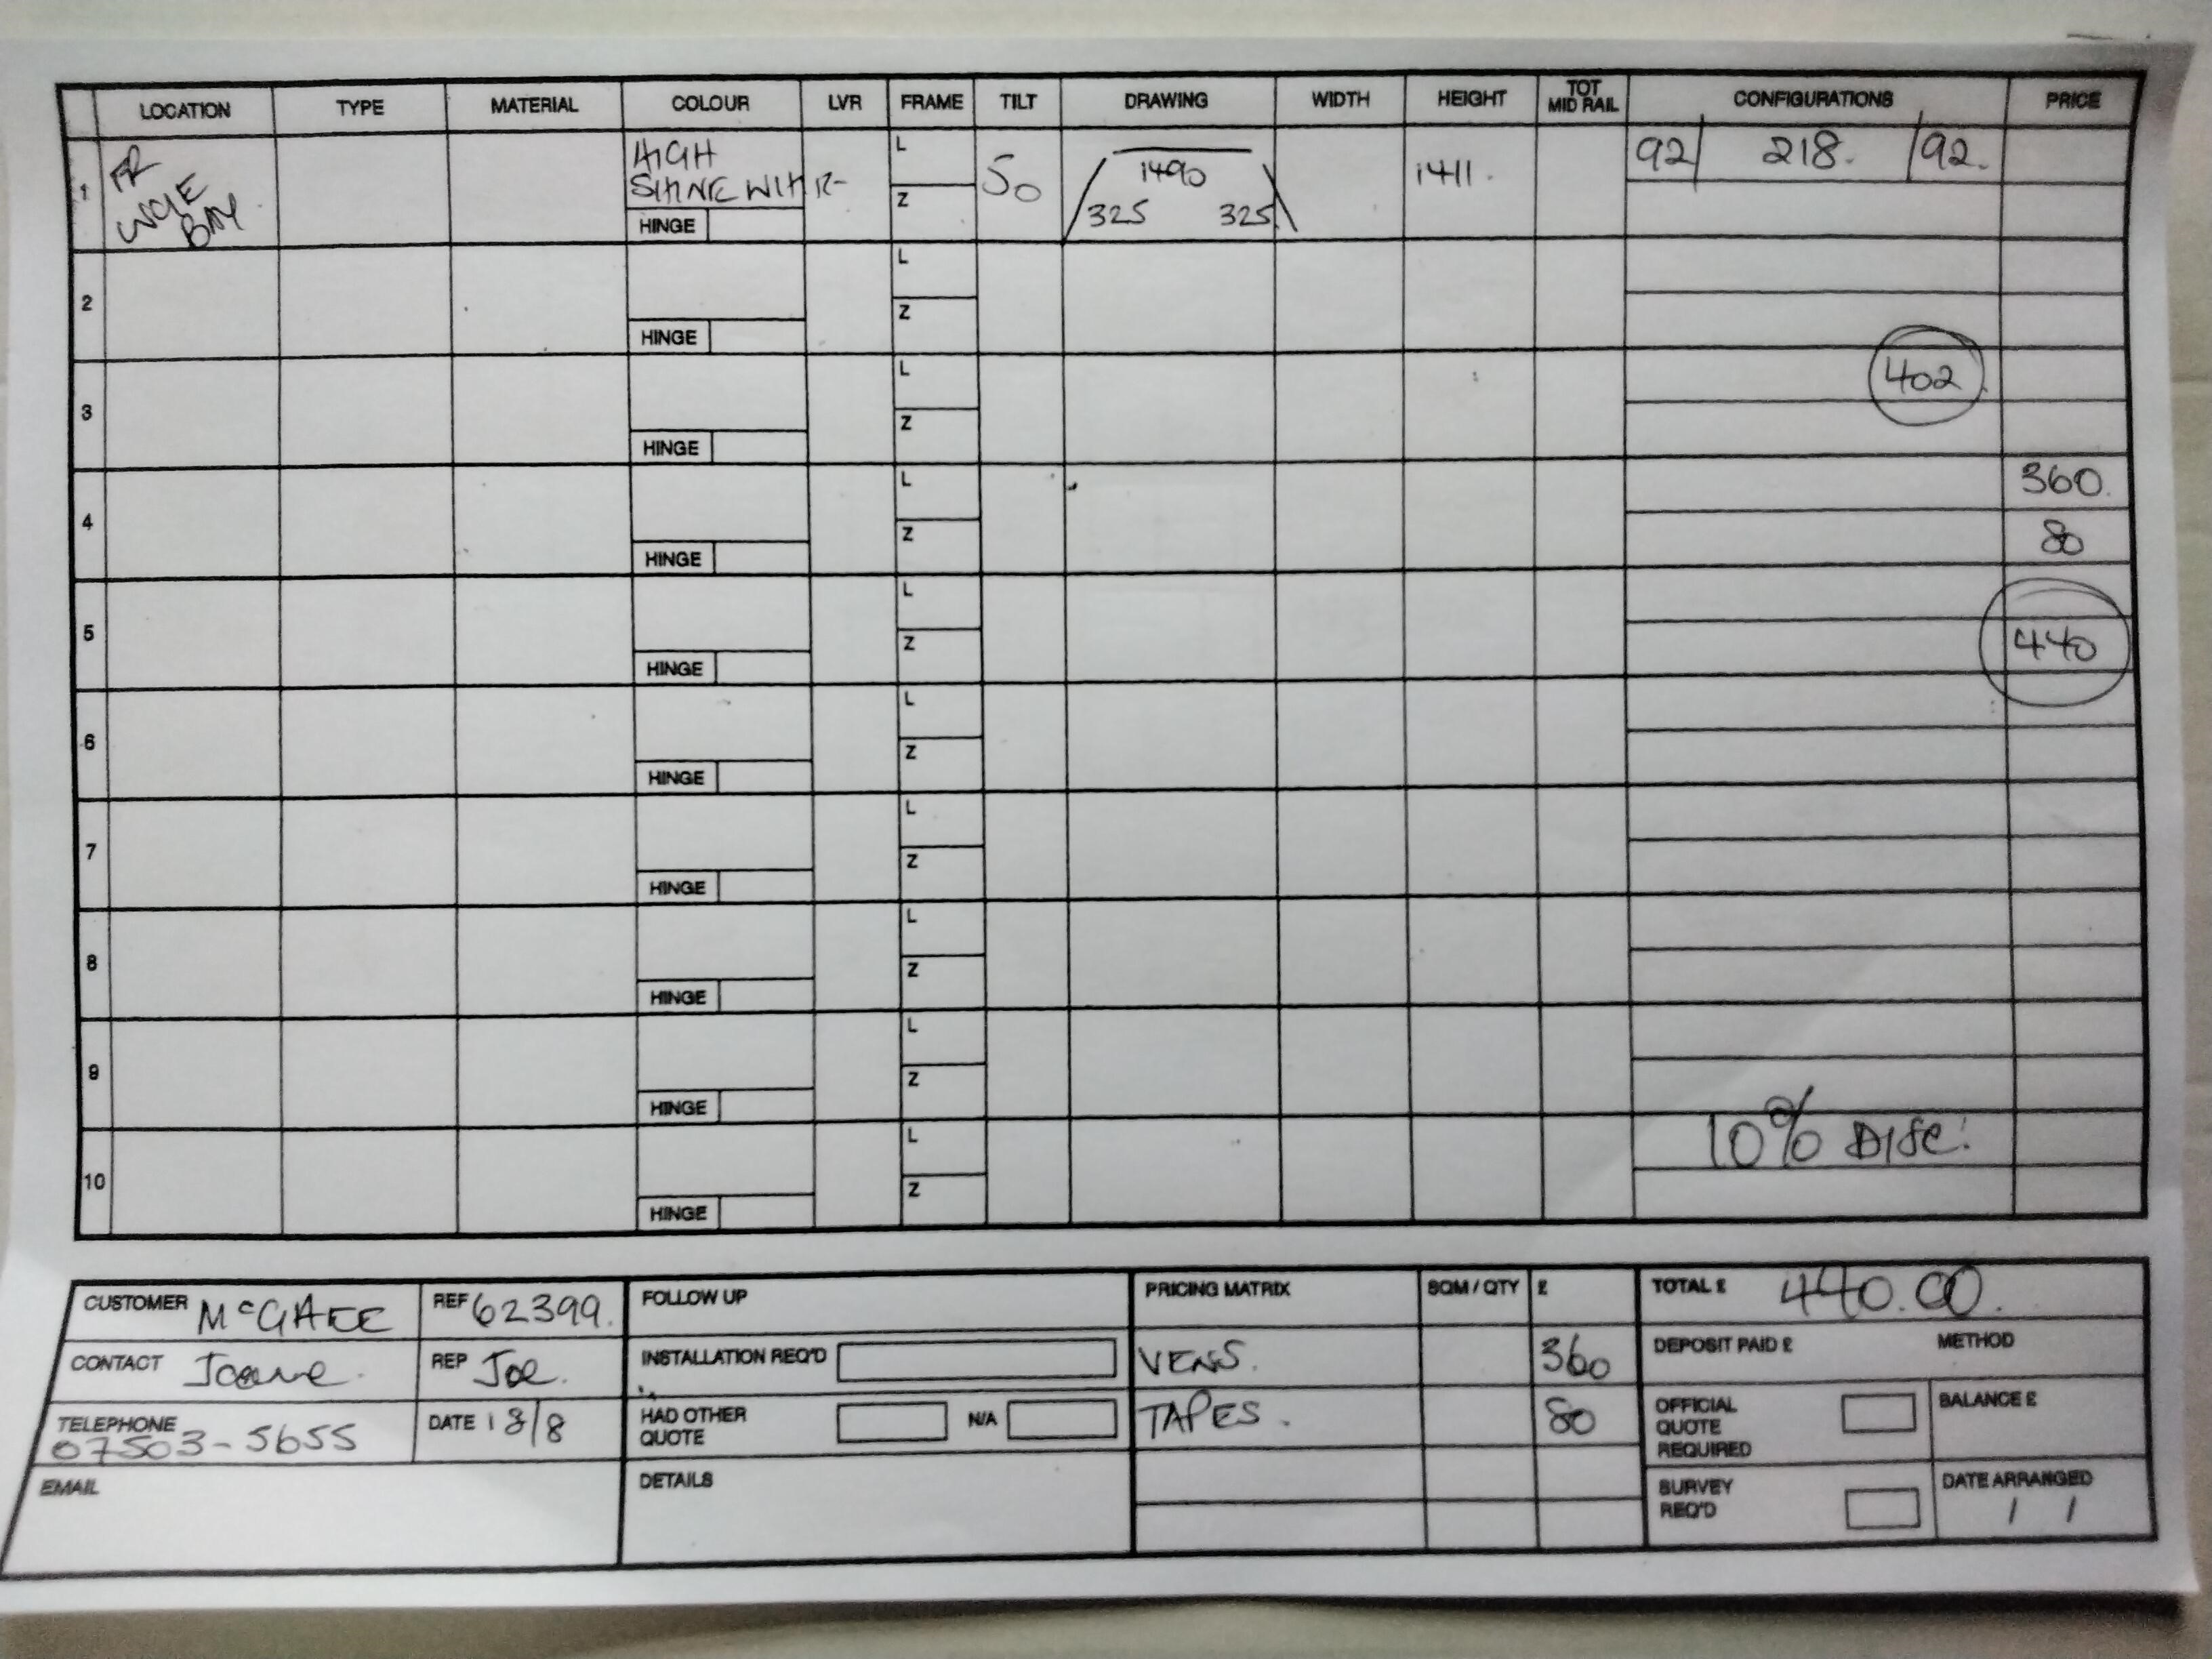 LOCATION TYPE MATERIAL COLOUR LVR FRAME TILT DRAWING WIDTH HEIGHT TOT MID RAIL CONFIGURATIONS PRICE
1 FR HIGH L 50 1490 1411. 92/ 218. /92.
SHINE WH Z 325 325
BAY HINGE
2 L
Z
HINGE
3 L 402
Z
HINGE
4 L 360.
Z 80
HINGE
5 L
Z 440
HINGE
6 L
Z
HINGE
7 L
Z
HINGE
8 L
Z
HINGE
9 L
Z
HINGE
10 L 10% DISC.
Z
HINGE
CUSTOMER McGHEE REF 62399. FOLLOW UP PRICING MATRIX SQM / QTY £ TOTAL £ 440.00.
CONTACT REP Joe. INSTALLATION REQ'D VENS. 360 DEPOSIT PAID £ METHOD
TELEPHONE 07503-5655 DATE 18/8 HAD OTHER QUOTE N/A TAPES. 80 OFFICIAL QUOTE REQUIRED BALANCE £
EMAIL DETAILS SURVEY REQ'D DATE ARRANGED / /